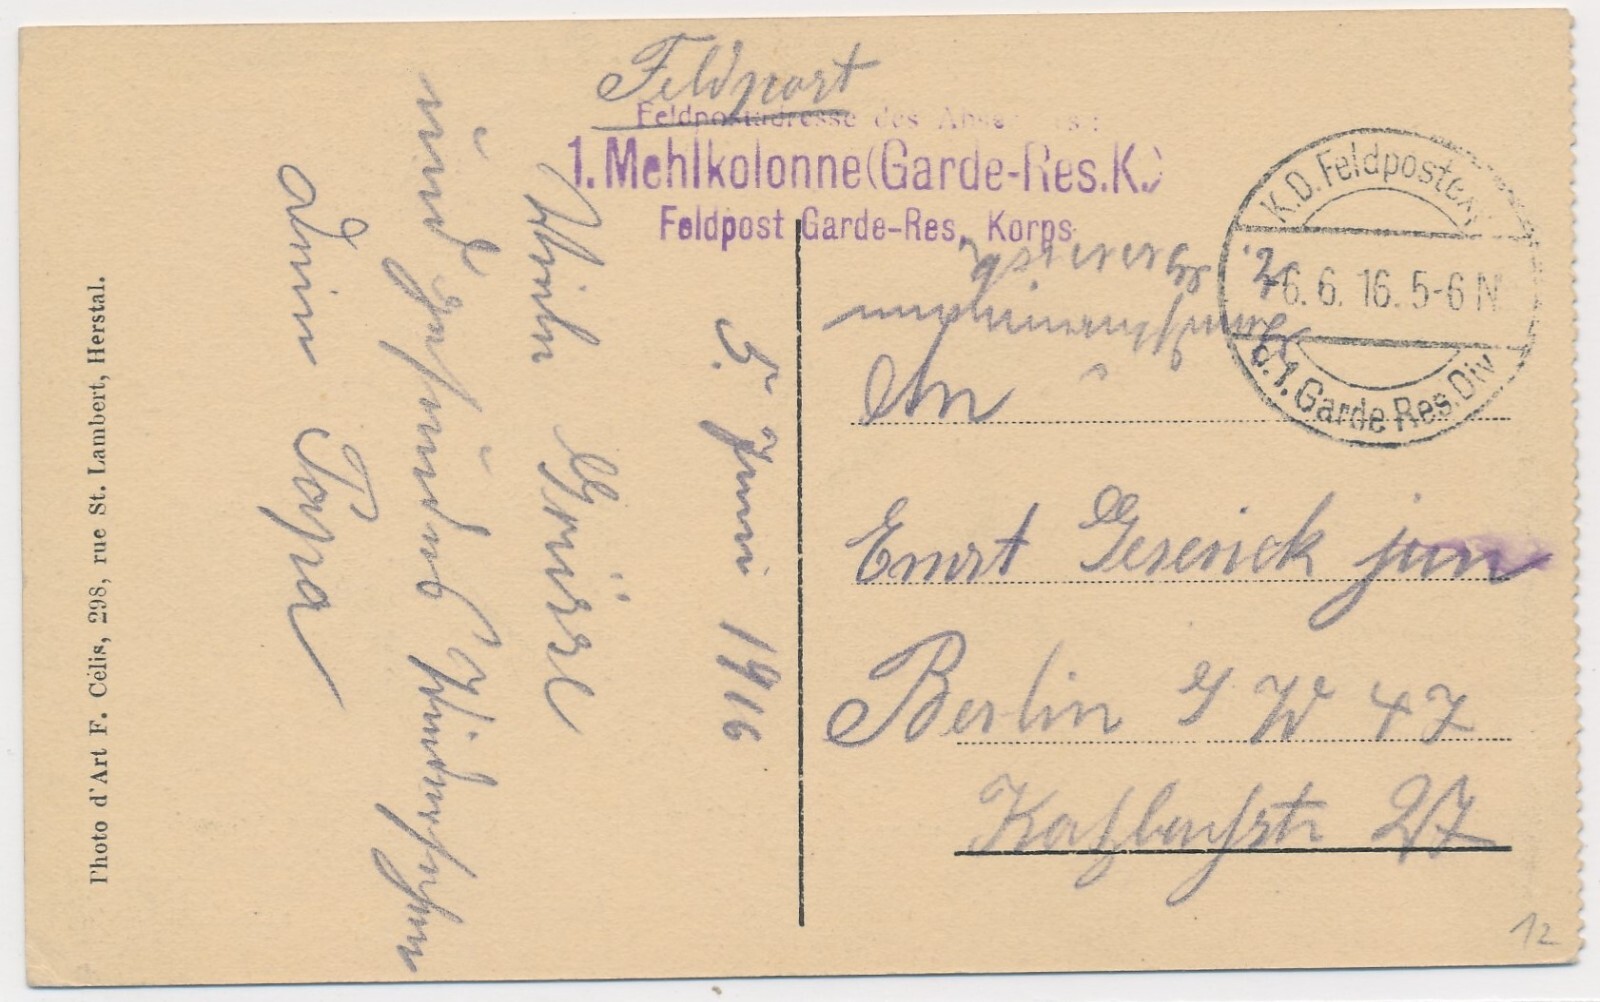 Feldpost
Feldpostadresse des Absenders:
1. Mehlkolonne (Garde-Res.K.)
Feldpost Garde-Res. Korps
K.D. Feldpostexp.
* 6.6.16. 5-6 N
d. 1. Garde Res. Div
An
Ernst Geserick jun
Berlin S W 47
Katzbachstr 27
5. Juni 1916
Viele Grüsse
und gesundes Wiedersehen
dein Papa
Photo d'Art F. Célis, 298, rue St. Lambert, Herstal.
12